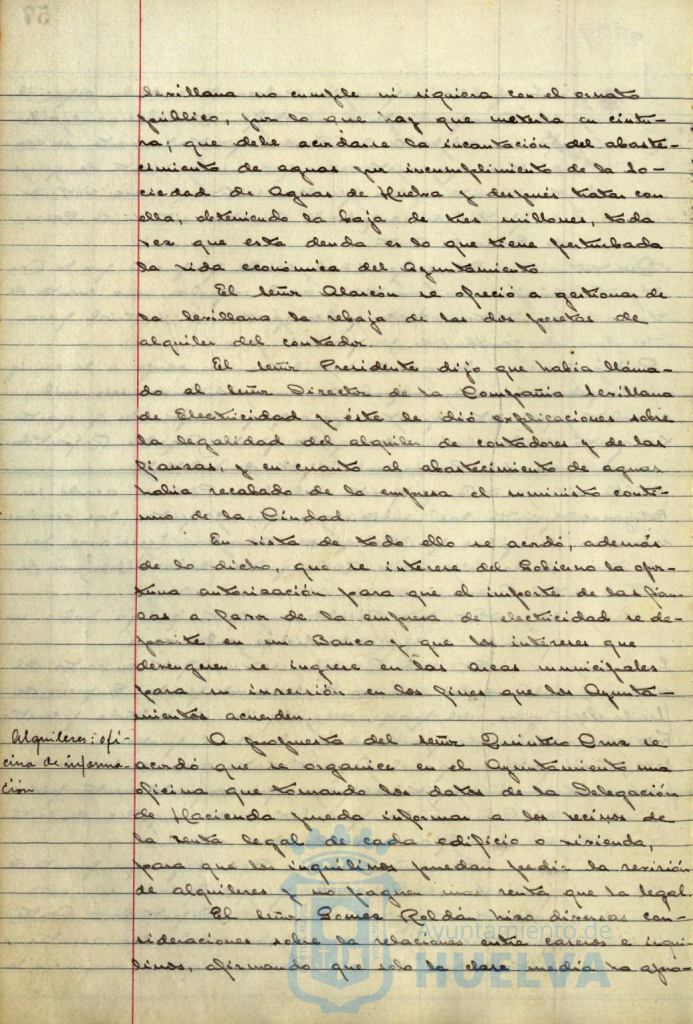 57
Sevillana no cumple ni siquiera con el ornato
público, por lo que hay que meterla en cintu-
ra; que debe acordarse la incautación del abaste-
cimiento de aguas por incumplimiento de la So-
ciedad de Aguas de Huelva y después tratar con
ella, obteniendo la baja de tres millones, toda
vez que esta deuda es lo que tiene perturbada
la vida económica del Ayuntamiento
El señor Alarcón se ofreció a gestionar de
la Sevillana la rebaja de las dos pesetas de
alquiler del contador.
El señor Presidente dijo que había llama-
do al señor Director de la Compañía Sevillana
de Electricidad y éste le dió explicaciones sobre
la legalidad del alquiler de contadores y de las
fianzas, y en cuanto al abastecimiento de aguas
había recabado de la empresa el suministo conti-
nuo de la Ciudad.
En vista de todo ello se acordó, además
de lo dicho, que se interese del Gobierno la opor-
tuna autorización para que el importe de las fian-
zas a favor de la empresa de electricidad se de-
posite en un Banco y que los intereses que
devenguen se ingrese en las arcas municipales
para su inversión en los fines que los Ayunta-
mientos acuerden.
Alquileres: ofi-
cina de informa-
ción
A propuesta del señor Quintero Cruz se
acordó que se organice en el Ayuntamiento una
oficina que tomando los datos de la Delegación
de Hacienda pueda informar a los vecinos de
la renta legal de cada edificio o vivienda,
para que los inquilinos puedan pedir la revisión
de alquileres y no paguen mas renta que la legal.
El señor Gomez Roldán hizo diversas con-
sideraciones sobre la relaciones entre caseros e inqui-
linos, afirmando que solo la clase media ha apro-
Ayuntamiento de
HUELVA